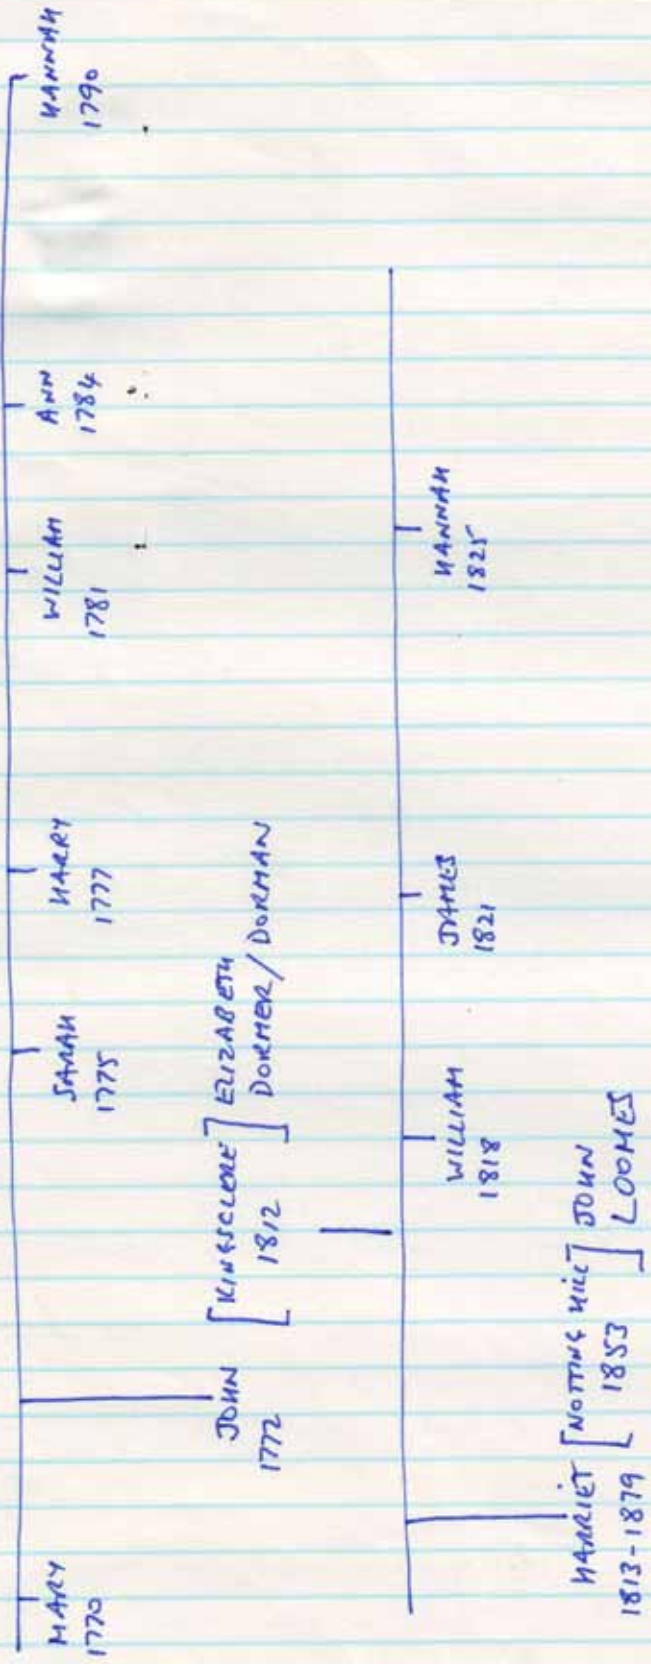 MARY
1770
JOHN
1772
[KINGSCLERE]
1812
ELIZABETH
DORMER/DORMAN
SARAH
1775
HARRY
1777
WILLIAM
1781
ANN
1784
HANNAH
1790
HARRIET
1813-1879
[NOTTING HILL]
1853
JOHN
LOOMES
WILLIAM
1818
JAMES
1821
HANNAH
1825